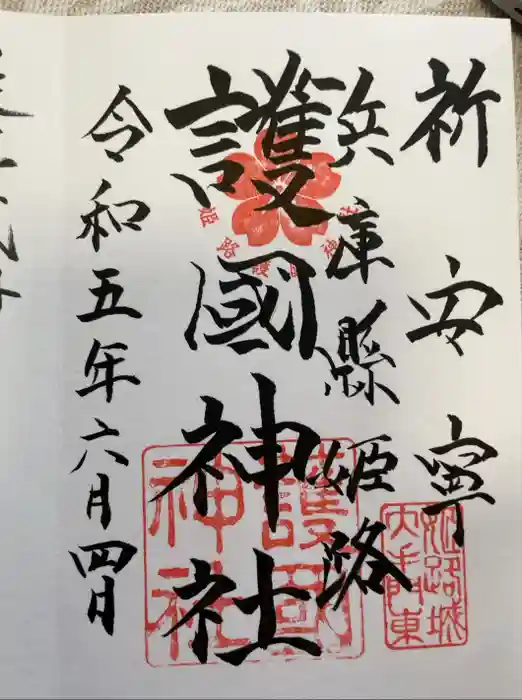 祈安寧
兵庫縣姫路
護國神社
令和五年六月四日
姫路城
大手門東
護国
神社